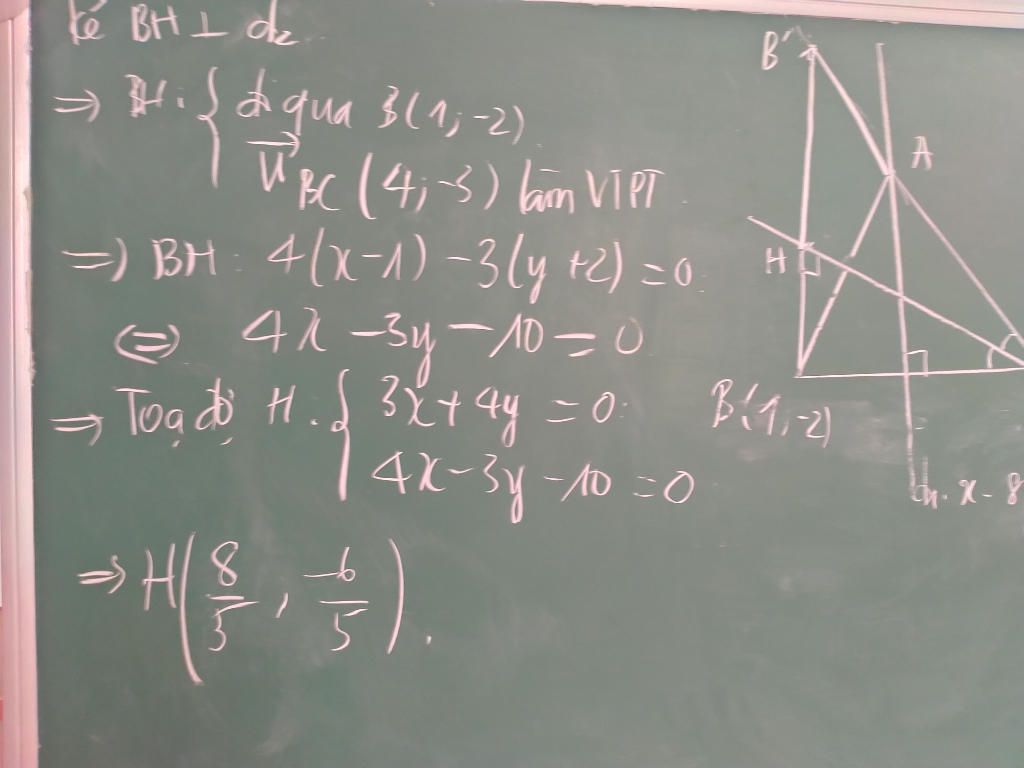 kẻ BH ⊥ d₂
⇒ BH: { đi qua B(1; -2)
→u BC (4; -3) làm VTPT
⇒ BH: 4(x-1) - 3(y+2) = 0
⇔ 4x - 3y - 10 = 0
⇒ Toạ độ H: { 3x + 4y = 0
4x - 3y - 10 = 0
⇒ H(8/5, -6/5).
B'
A
H
B(1; -2)
x - 8